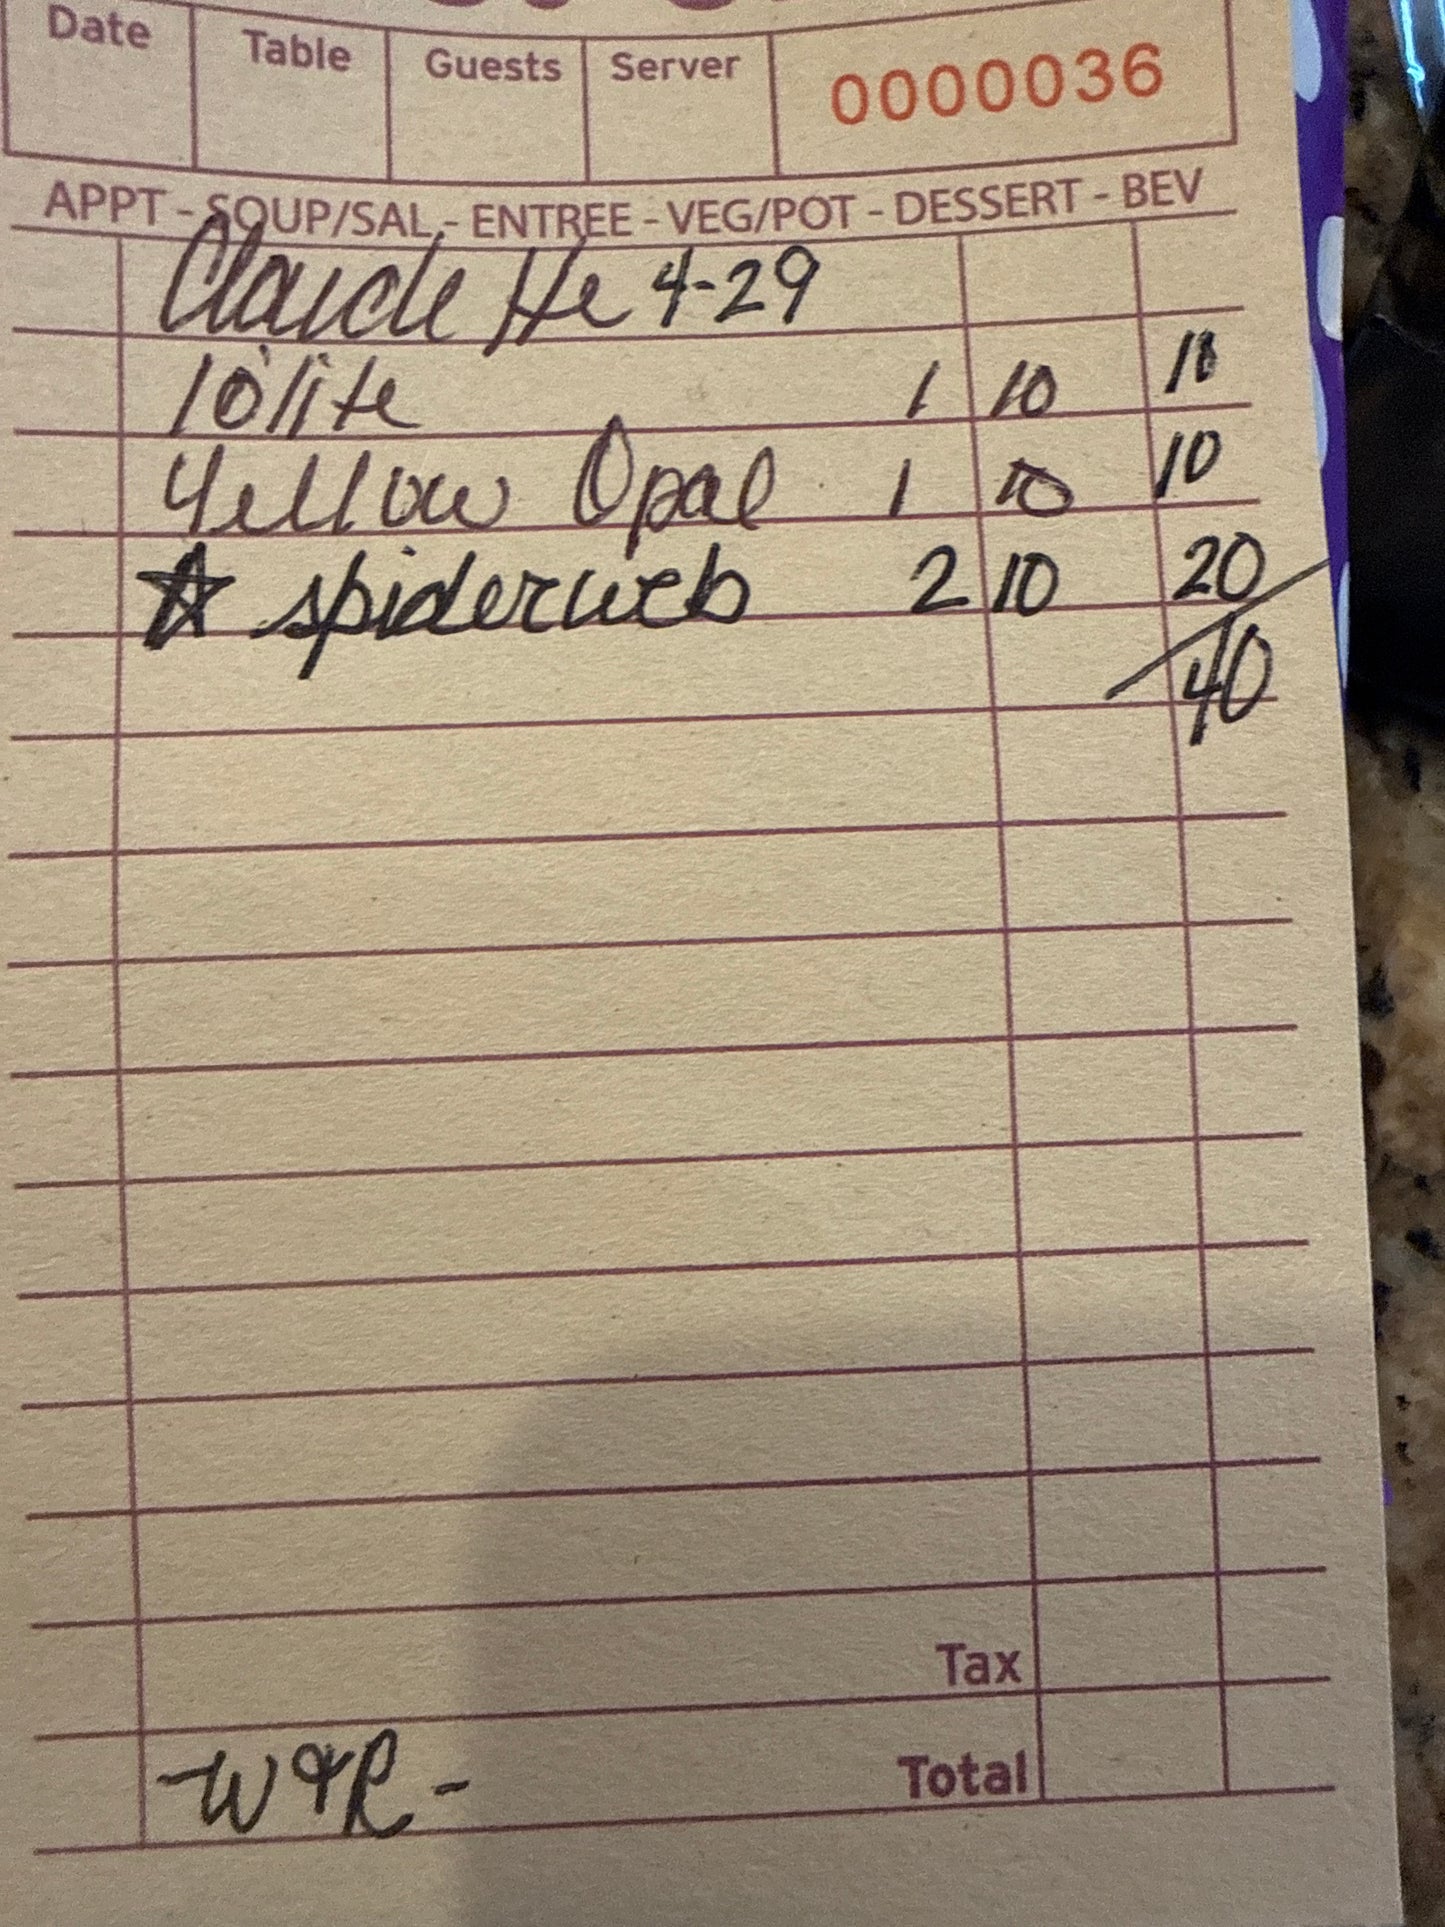 Date Table Guests Server 0000036
APPT - SOUP/SAL - ENTREE - VEG/POT - DESSERT - BEV
Claudette 4-29
Iolite 1 10 10
Yellow Opal 1 10 10
☆ spiderweb 2 10 20
40
Tax
-W&R- Total